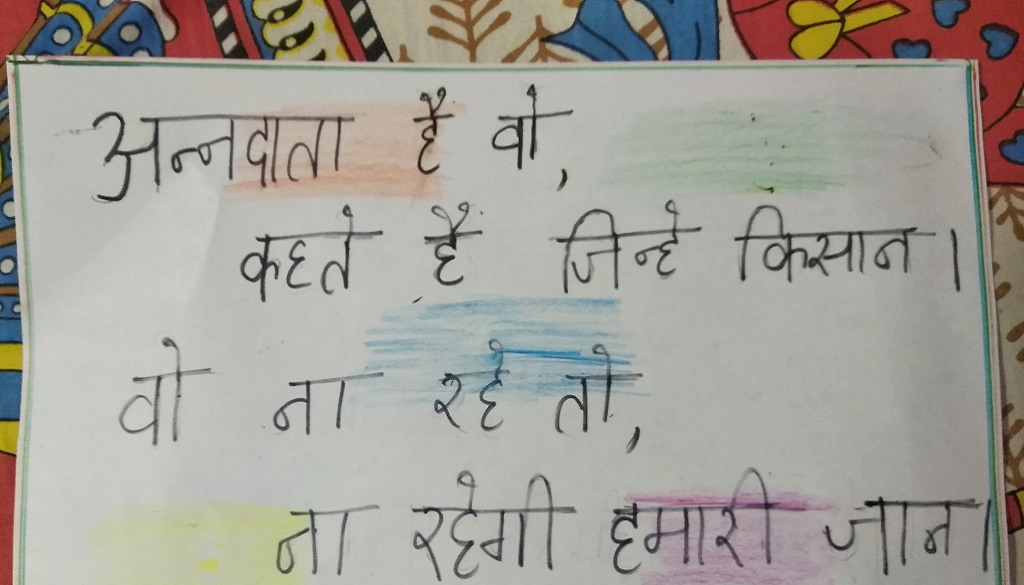 अन्नदाता है वो,
कहते हैं जिन्हे किसान।
वो ना रहे तो,
ना रहेगी हमारी जान।